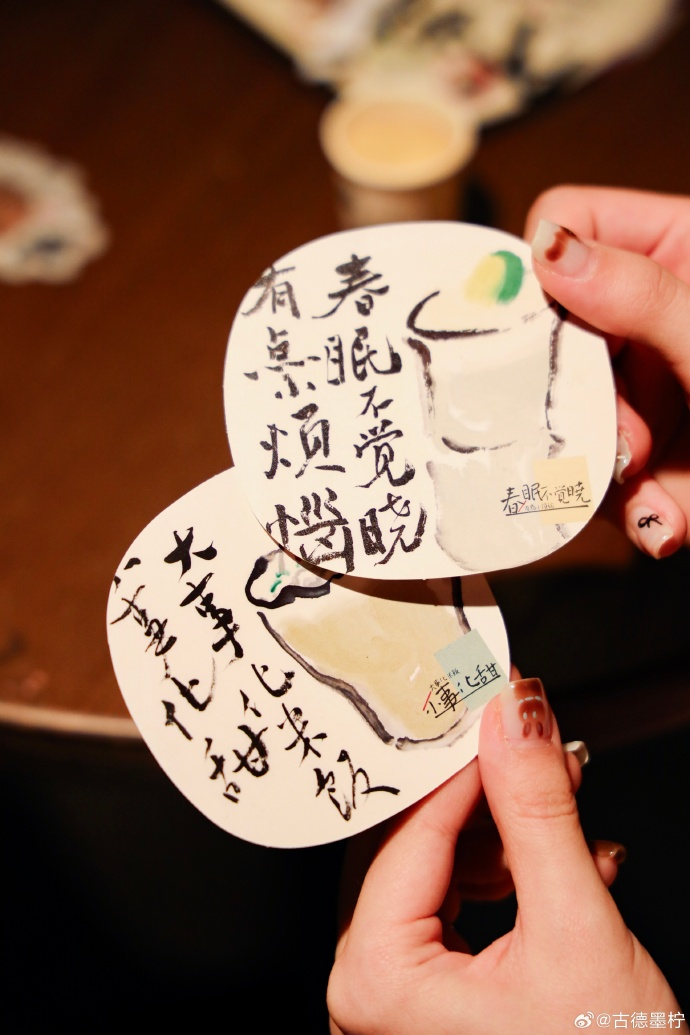 春眠不觉晓
有点烦恼
春眠不觉晓
大事化米饭
小事化甜
小事化甜
@古德墨柠